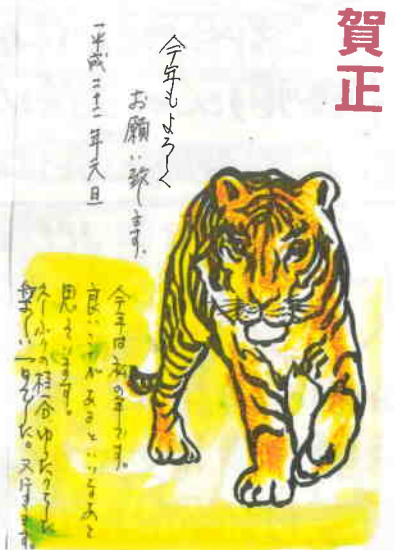 賀正
今年もよろしく
お願い致します。
平成二十二年元旦
今年は初の年です。
良い事があるといいなあと
思えています。
久しぶりの
楽しい一日でした。又行きます。